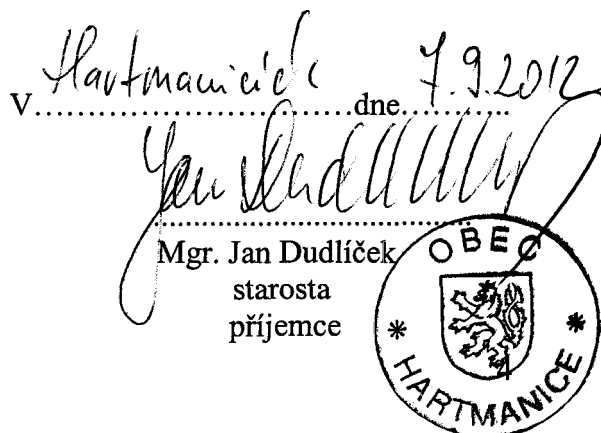 V Hartmanicích dne 7.9.2012
Jan Dudlíček
Mgr. Jan Dudlíček
starosta
příjemce
OBEC
* HARTMANICE *
4